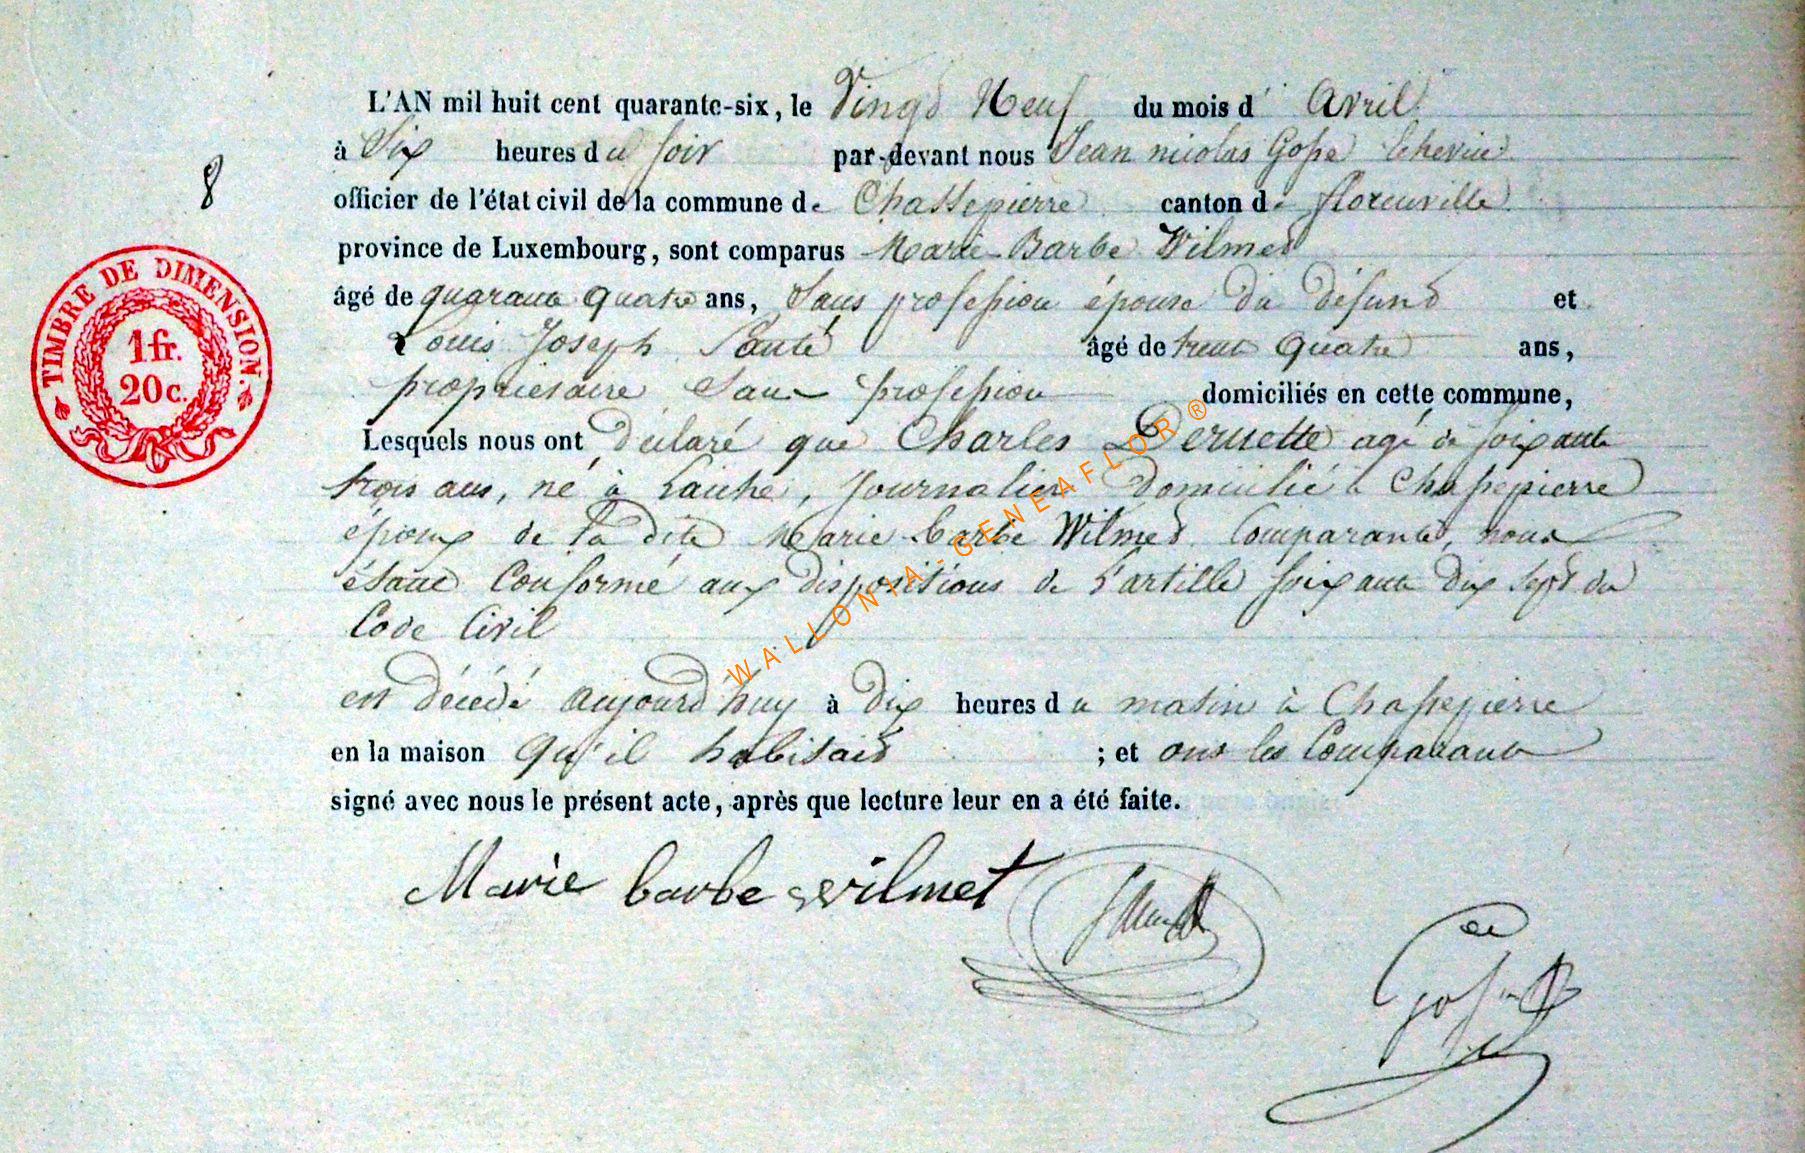 L'AN mil huit cent quarante-six, le Vingt Neuf du mois d' Avril
à Six heures du soir par-devant nous Jean nicolas Gosse Echevin
officier de l'état civil de la commune de Chassepierre canton de florenville
province de Luxembourg, sont comparus Marie Barbe Wilmet
âgé de quarante quatre ans, Sans profession épouse du défunt et
Louis Joseph âgé de trente quatre ans,
propriétaire Sans profession domiciliés en cette commune,
Lesquels nous ont déclaré que Charles agé de soixante
trois ans, né à journalier domicilié à Chassepierre
époux de la dite Marie barbe Wilmet Comparante, nous
étant Conformé aux dispositions de l'artille soixante Dix Sept du
Code Civil
est décédé aujourd'huy à dix heures du matin à Chassepierre
en la maison qu'il habitait ; et ont les Comparants
signé avec nous le présent acte, après que lecture leur en a été faite.
Marie barbe wilmet
8
TIMBRE DE DIMENSION.
1fr.
20c.
WALLONIA-GENEAFLOR®